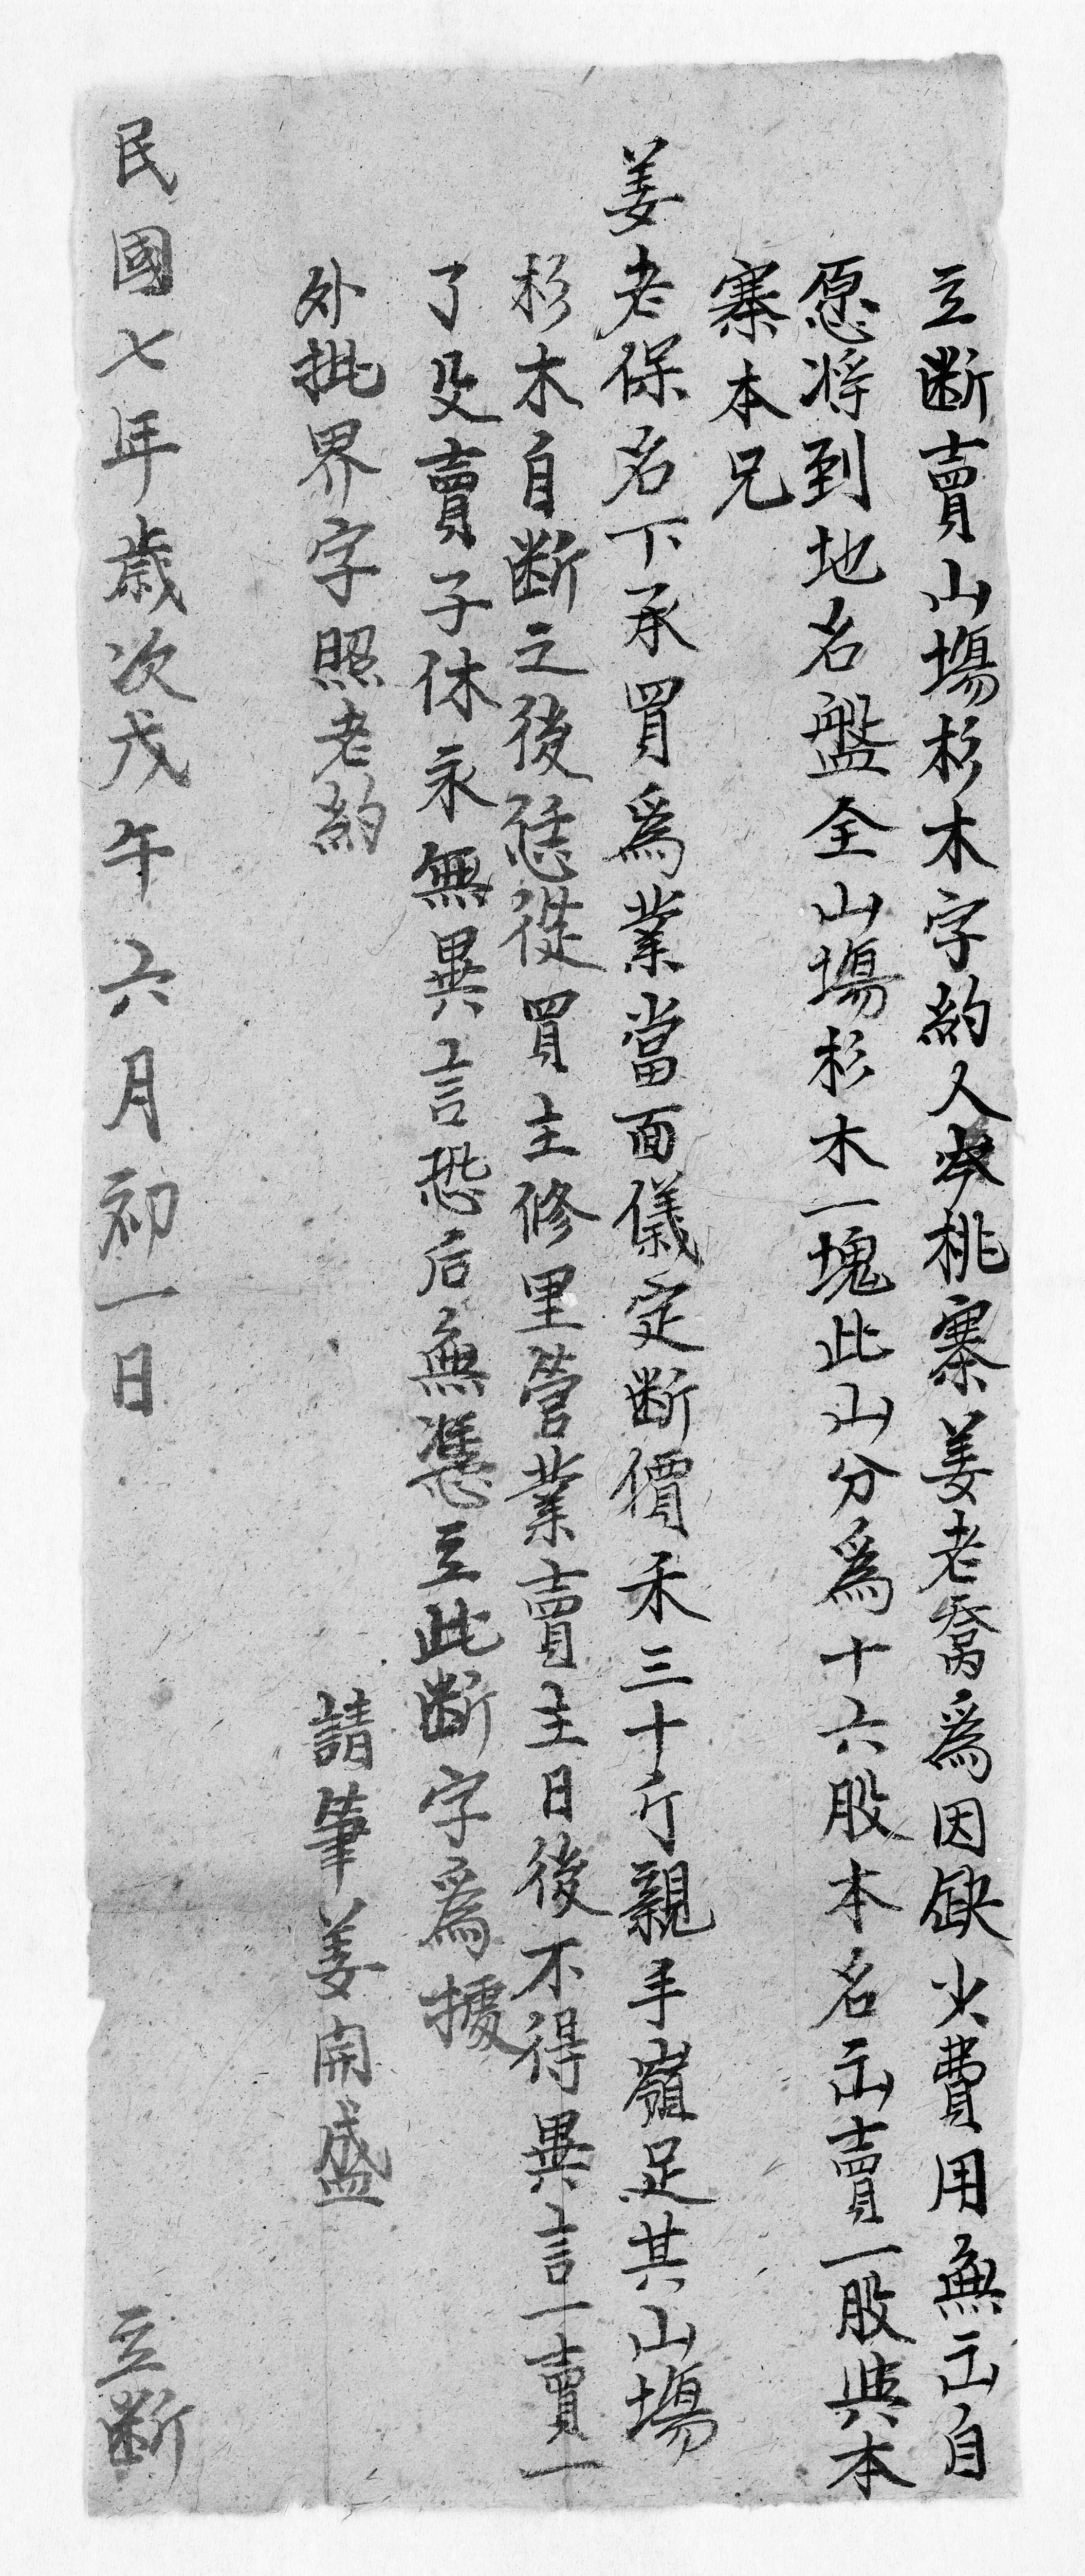 立断賣山塲杉木字約人本桃寨姜老喬爲因缺少費用無出自
愿将到地名盤全山塲杉木一塊此山分爲十六股本名出賣一股與本
寨本兄
姜老保名下承買爲業當面儀定断價禾三十斤親手嶺足其山塲
杉木自断之後恁從買主修里管業賣主日後不得異言一賣一
了父賣子休永無異言恐后無憑立此断字爲據
外批界字照老約
請筆姜開盛
民國七年歲次戊午六月初一日 立断